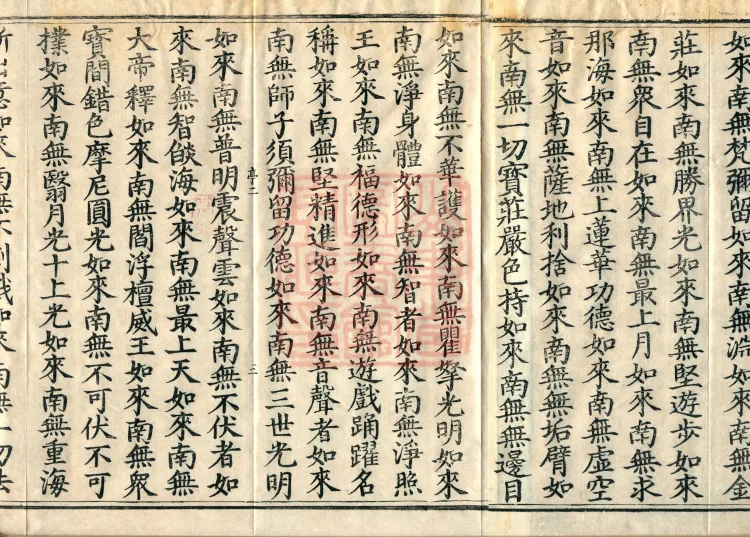 如來南無梵彌留如來南無浩如來南無金
莊如來南無勝界光如來南無堅遊步如來
南無眾自在如來南無最上月如來南無求
那海如來南無上蓮華功德如來南無虛空
音如來南無薩地利捨如來南無無垢臂如
來南無一切寶莊嚴色持如來南無無邊目
如來南無不華護如來南無瞿拏光明如來
南無淨身體如來南無智者如來南無淨照
王如來南無福德形如來南無遊戲踊躍名
稱如來南無堅精進如來南無音聲者如來
南無師子須彌留功德如來南無三世光明
亭二 三
如來南無普明震聲雲如來南無不伏者如
來南無智燄海如來南無最上天如來南無
大帝釋如來南無閻浮檀威王如來南無眾
寶間錯色摩尼圓光如來南無不可伏不可
撲如來南無翳月光十上光如來南無重海
如來南無不 如來南無一切去